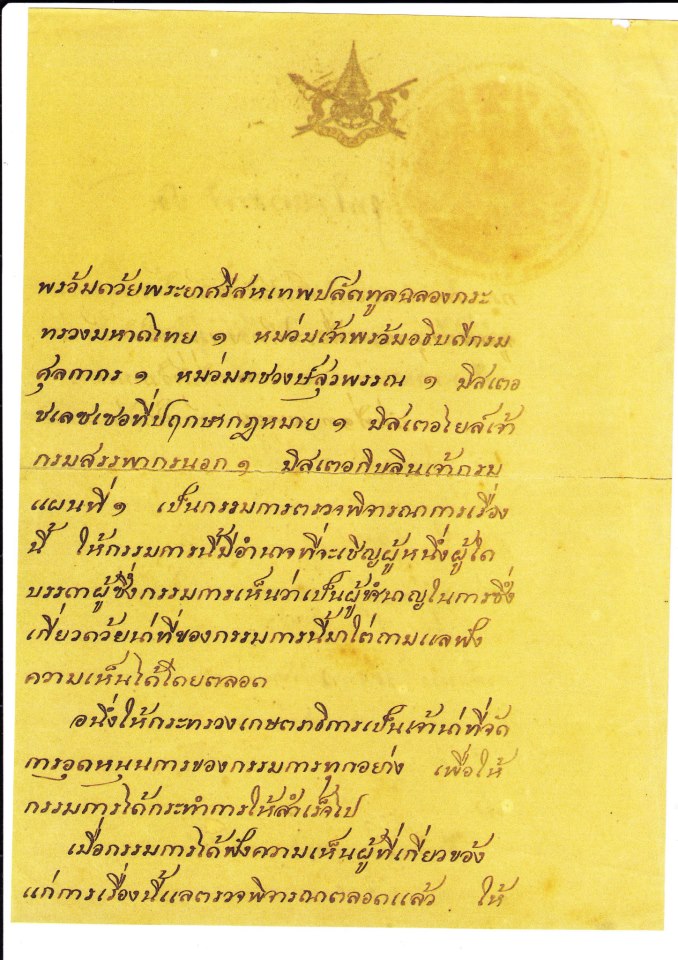 พร้อมด้วยพระยาศรีสหเทพปลัดทูลฉลองกระ
ทรวงมหาดไทย ๑ หม่อมเจ้าพร้อมอธิบดีกรม
ศุลกากร ๑ หม่อมราชวงษ์สุวพรรณ ๑ มิสเตอ
ชเลซเชอที่ปฤกษากฎหมาย ๑ มิสเตอไยล์เจ้า
กรมสรรพากรนอก ๑ มิสเตอกิบลินเจ้ากรม
แผนที่ ๑ เป็นกรรมการตรวจพิจารณาการเรื่อง
นี้ ให้กรรมการนี้มีอำนาจที่จะเชิญผู้หนึ่งผู้ใด
บรรดาผู้ซึ่งกรรมการเห็นว่าเป็นผู้ชำนาญในการซึ่ง
เกี่ยวด้วยน่าที่ของกรรมการนี้มาไต่ถามแลฟัง
ความเห็นได้โดยตลอด
อนึ่งให้กระทรวงเกษตราธิการเป็นเจ้าน่าที่จัด
การอุดหนุนการของกรรมการทุกอย่าง เพื่อให้
กรรมการได้กระทำการให้สำเร็จไป
เมื่อกรรมการได้ฟังความเห็นผู้ที่เกี่ยวข้อง
แก่การเรื่องนี้แลตรวจพิจารณาตลอดแล้ว ให้